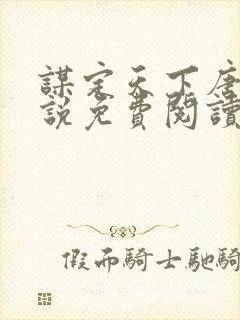 謀定天下唐
說免費閱讀
假而騎士馳騎